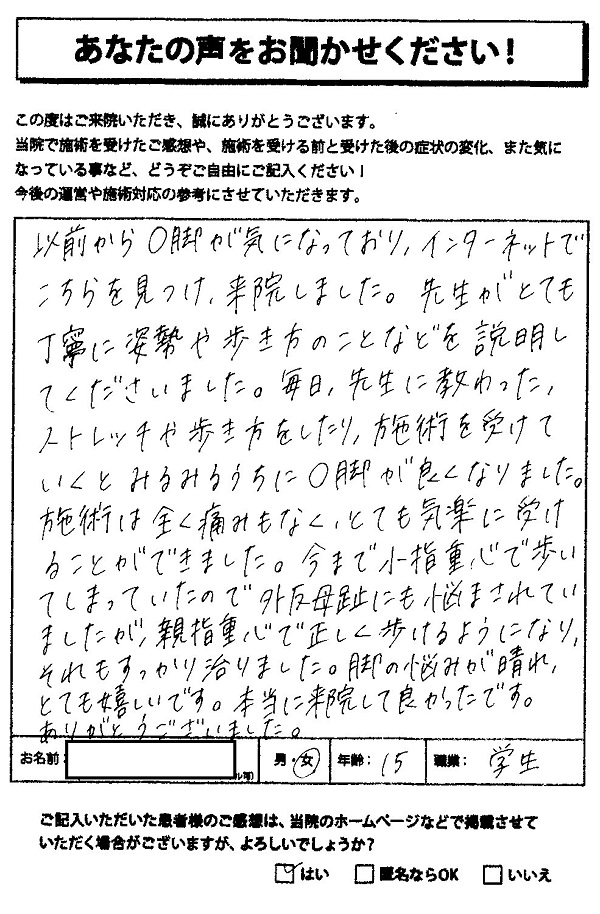 あなたの声をお聞かせください！
この度はご来院いただき、誠にありがとうございます。
当院で施術を受けたご感想や、施術を受ける前と受けた後の症状の変化、また気に
なっている事など、どうぞご自由にご記入ください！
今後の運営や施術対応の参考にさせていただきます。
以前からO脚が気になっており、インターネットで
こちらを見つけ、来院しました。先生がとても
丁寧に姿勢や歩き方のことなどを説明し
てくださいました。毎日、先生に教わった、
ストレッチや歩き方をしたり、施術を受けて
いくとみるみるうちにO脚が良くなりました。
施術は全く痛みもなく、とても気楽に受け
ることができました。今まで小指重心で歩い
てしまっていたので外反母趾にも悩まされてい
ましたが、親指重心で正しく歩けるようになり、
それもすっかり治りました。脚の悩みが晴れ、
とても嬉しいです。本当に来院して良かったです。
ありがとうございました。
お名前： 男・女 年齢：15 職業：学生
ご記入いただいた患者様のご感想は、当院のホームページなどで掲載させて
いただく場合がございますが、よろしいでしょうか？
はい 匿名ならOK いいえ